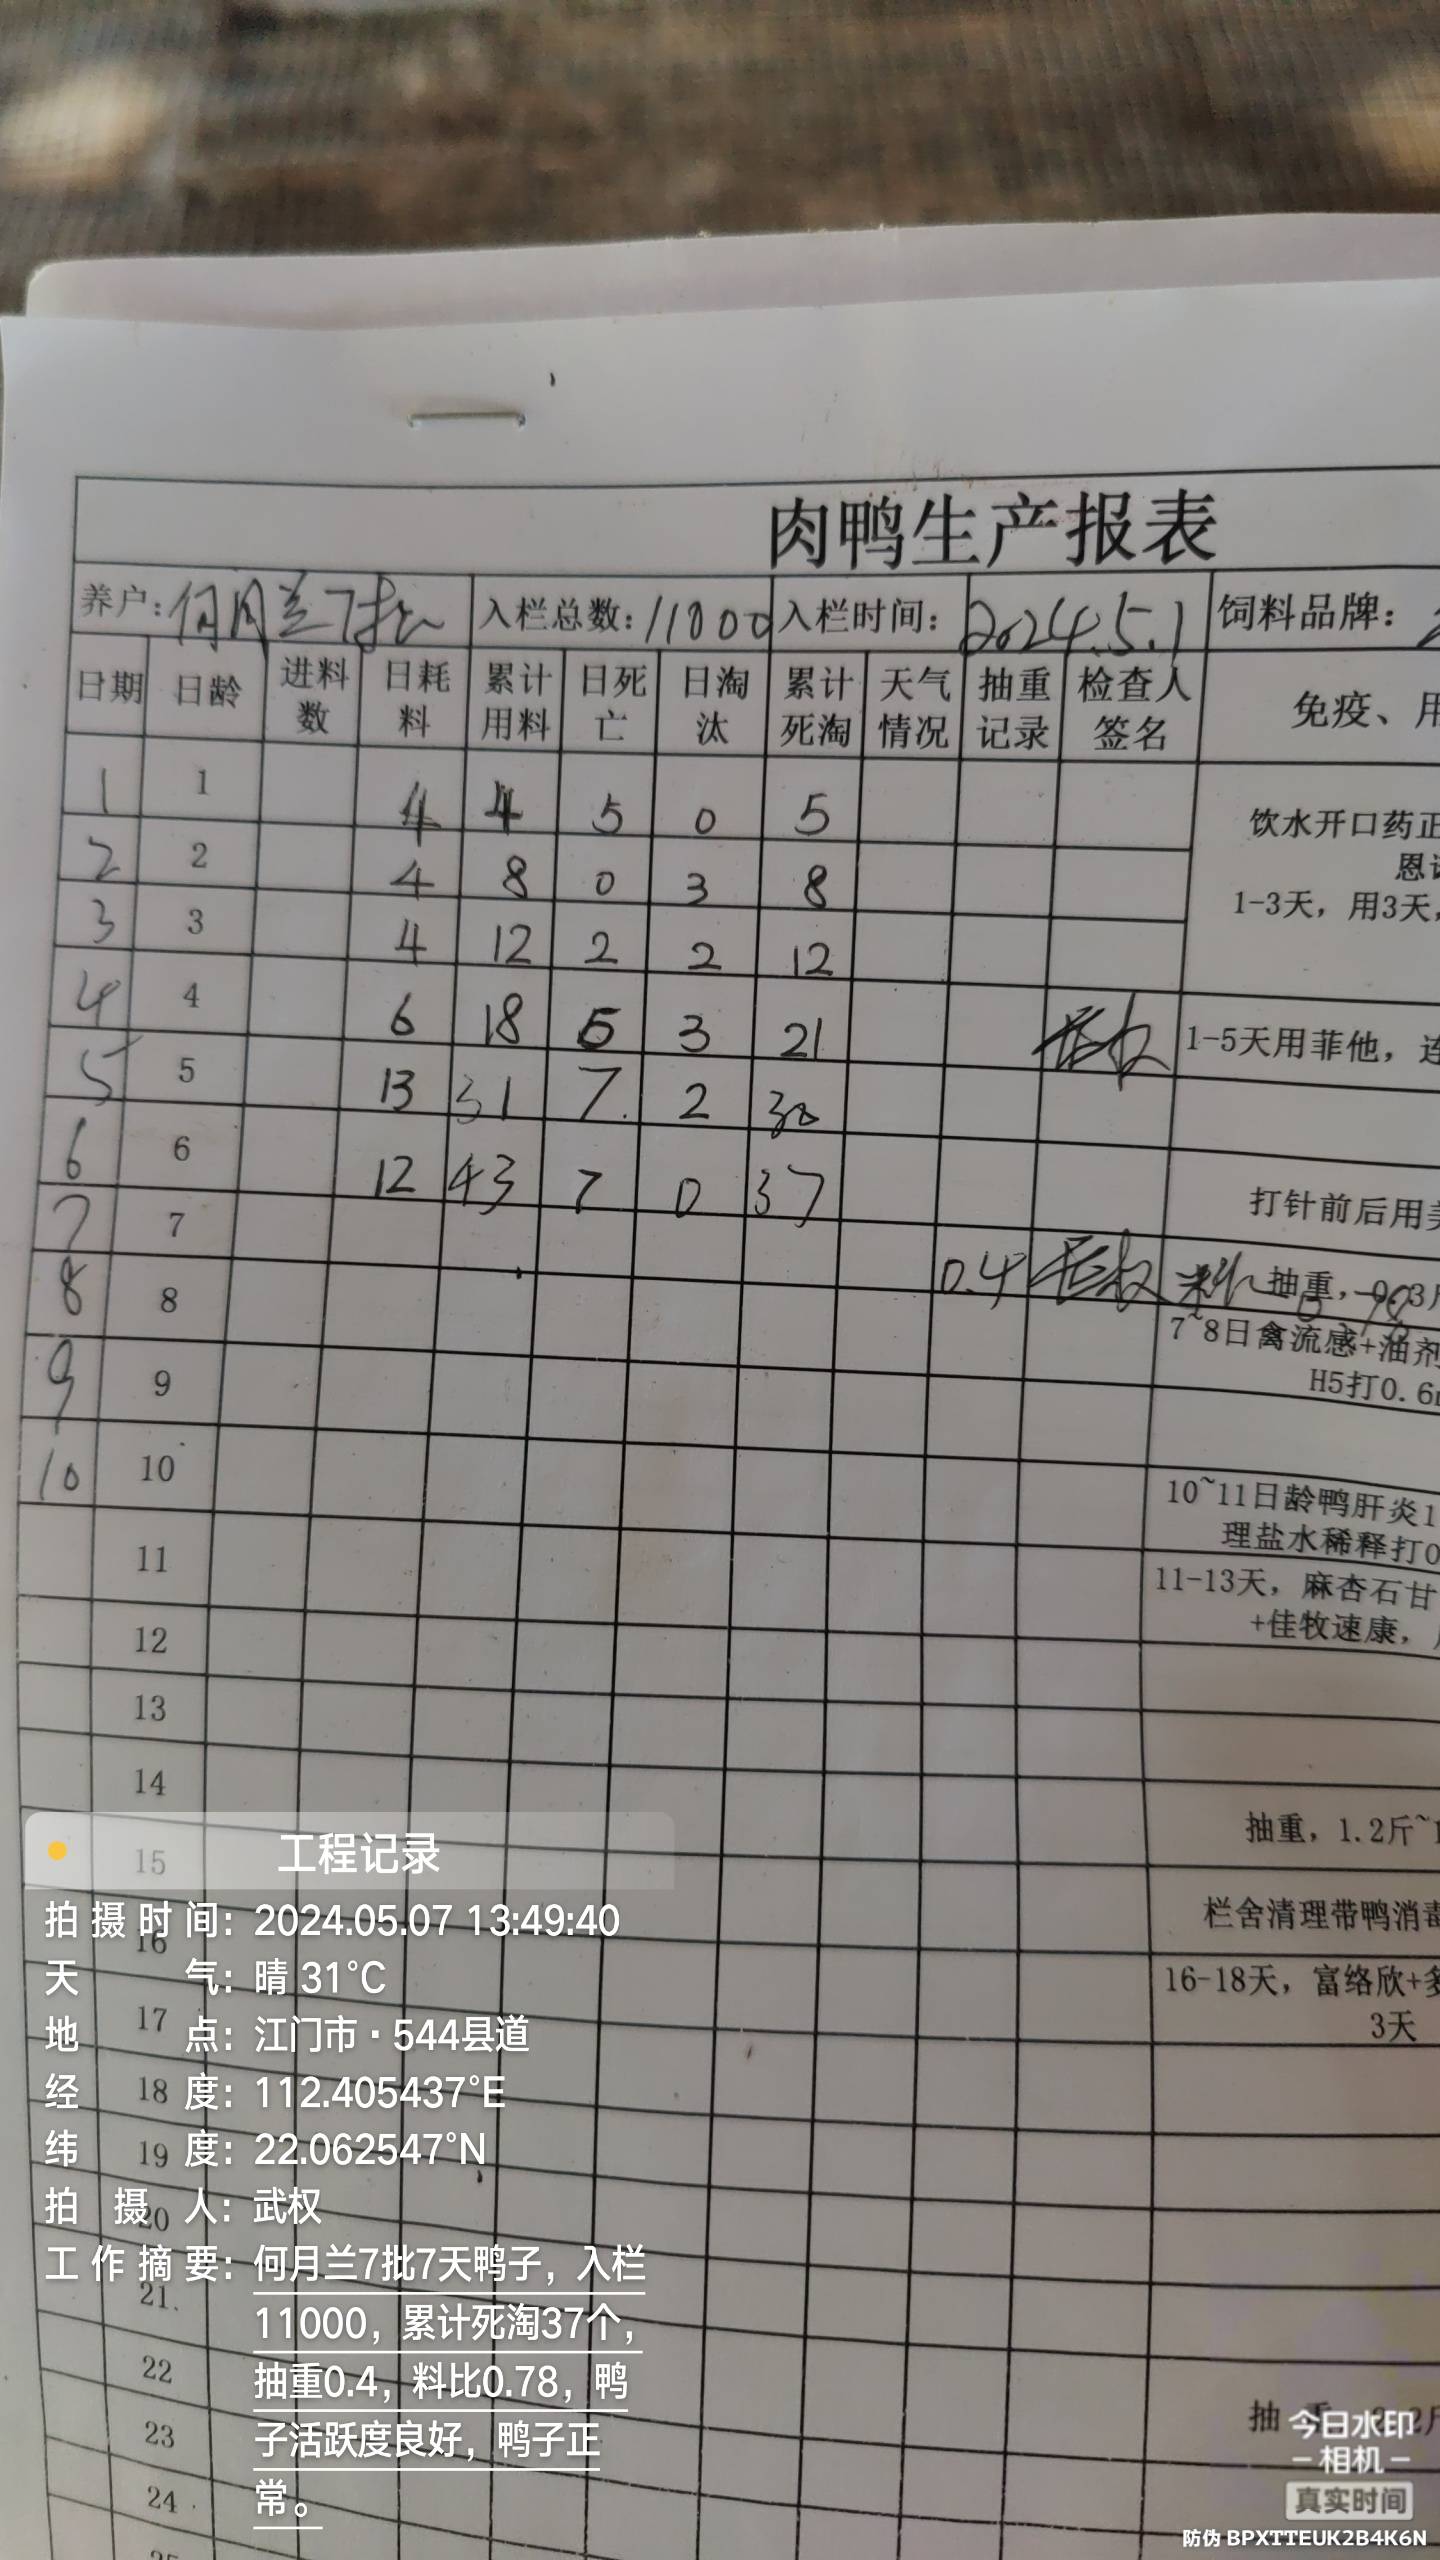 肉鸭生产报表
养户：何月兰7批 入栏总数：11000 入栏时间：2024.5.1 饲料品牌：
日期 日龄 进料数 日耗料 累计用料 日死亡 日淘汰 累计死淘 天气情况 抽重记录 检查人签名 免疫、用
1 1 4 4 5 0 5 饮水开口药正
2 2 4 8 0 3 8 恩诺
3 3 4 12 2 2 12 1-3天，用3天，
4 4 6 18 5 3 21 武权 1-5天用菲他，连
5 5 13 31 7 2 30
6 6 12 43 7 0 37 打针前后用美
7 7 0.4 武权 料比0.78 抽重，0.3斤
8 8 7~8日禽流感+油剂
H5打0.6m
9 9
10 10 10~11日龄鸭肝炎1
理盐水稀释打0
11 11-13天，麻杏石甘
+佳牧速康，
12
13
14 抽重，1.2斤~1
15 栏舍清理带鸭消毒
16 16-18天，富络欣+多
3天
17
18
19
20
21
22
23 抽
24
25
工程记录
拍摄时间：2024.05.07 13:49:40
天气：晴 31°C
地点：江门市·544县道
经度：112.405437°E
纬度：22.062547°N
拍摄人：武权
工作摘要：何月兰7批7天鸭子，入栏
11000，累计死淘37个，
抽重0.4，料比0.78，鸭
子活跃度良好，鸭子正
常。
今日水印
-相机-
真实时间
防伪 BPXTTEUK2B4K6N